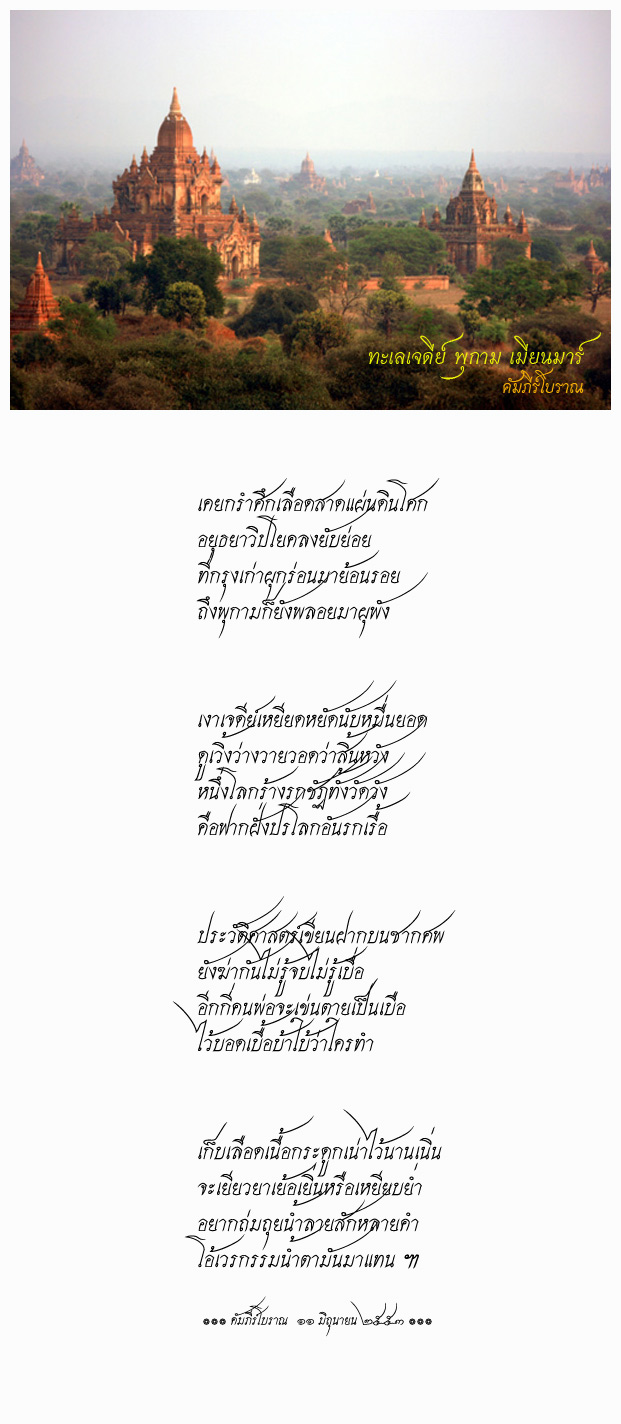 ทะเลเจดีย์ พุกาม เมียนมาร์
คัมภีร์โบราณ
เคยกรำศึกเลือดสาดแผ่นดินโศก
อยุธยาวิปโยคลงยับย่อย
ที่กรุงเก่าผุกร่อนมาย้อนรอย
ถึงพุกามก็ยังพลอยมาผุพัง
เงาเจดีย์เหยียดหยัดนับหมื่นยอด
ดูเวิ้งว่างวายวอดว่าสิ้นหวัง
หนึ่งโลกร้างรกชัฏทั้งวัดวัง
คือฟากฝั่งปรโลกอันรกเรื้อ
ประวัติศาสตร์เขียนฝากบนซากศพ
ยังฆ่ากันไม่รู้จบไม่รู้เบื่อ
อีกกี่คนพ่อจะเข่นตายเป็นเบือ
ไว้บอดเบื้อบ้าใบ้ว่าใครทำ
เก็บเลือดเนื้อกระดูกเน่าไว้นานเนิ่น
จะเยียวยาเย้อเยิ่นหรือเหยียบย่ำ
อยากถ่มถุยน้ำลายสักหลายคำ
โอ้เวรกรรมน้ำตามันมาแทน ๚
๏๏๏ คัมภีร์โบราณ ๑๑ มิถุนายน ๒๕๕๓ ๏๏๏